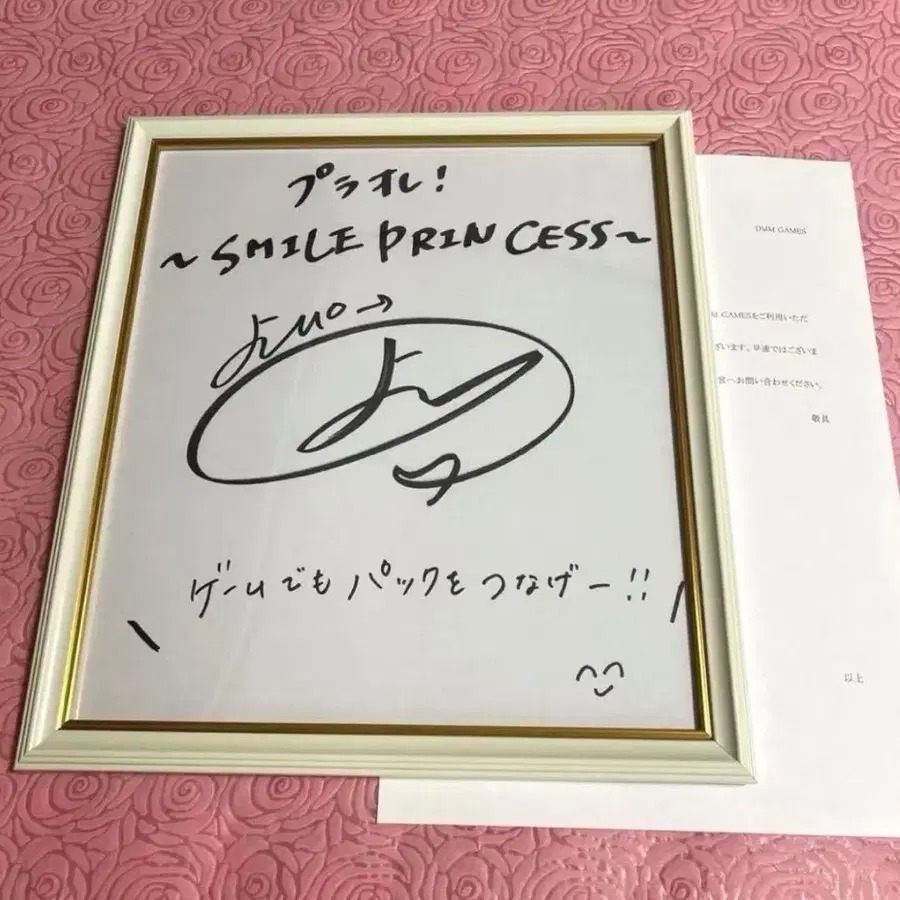 プラオレ!
~SMILE PRINCESS~
ゲームでもパックをつなげー!!
DMM GAMES
GAMESをご利用いただ
ざいます。早速ではございま
へお問い合わせください。
敬具
以上